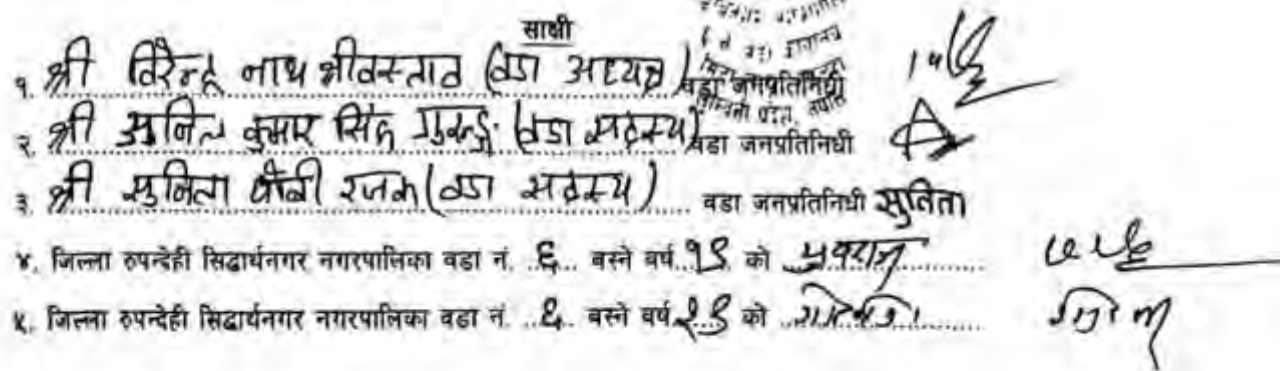 साक्षी
१. श्री विरेन्द्र नाथ श्रीवास्तव (वडा अध्यक्ष) वडा जनप्रतिनिधी
२. श्री सुनिल कुमार सिंह गुरुङ (वडा सदस्य) वडा जनप्रतिनिधी
३. श्री सुनिता धोबी रजक (वडा सदस्य) वडा जनप्रतिनिधी सुनिता
४. जिल्ला रुपन्देही सिद्धार्थनगर नगरपालिका वडा नं. ६ बस्ने वर्ष १९ को युवराज
५. जिल्ला रुपन्देही सिद्धार्थनगर नगरपालिका वडा नं. ६ बस्ने वर्ष २९ को